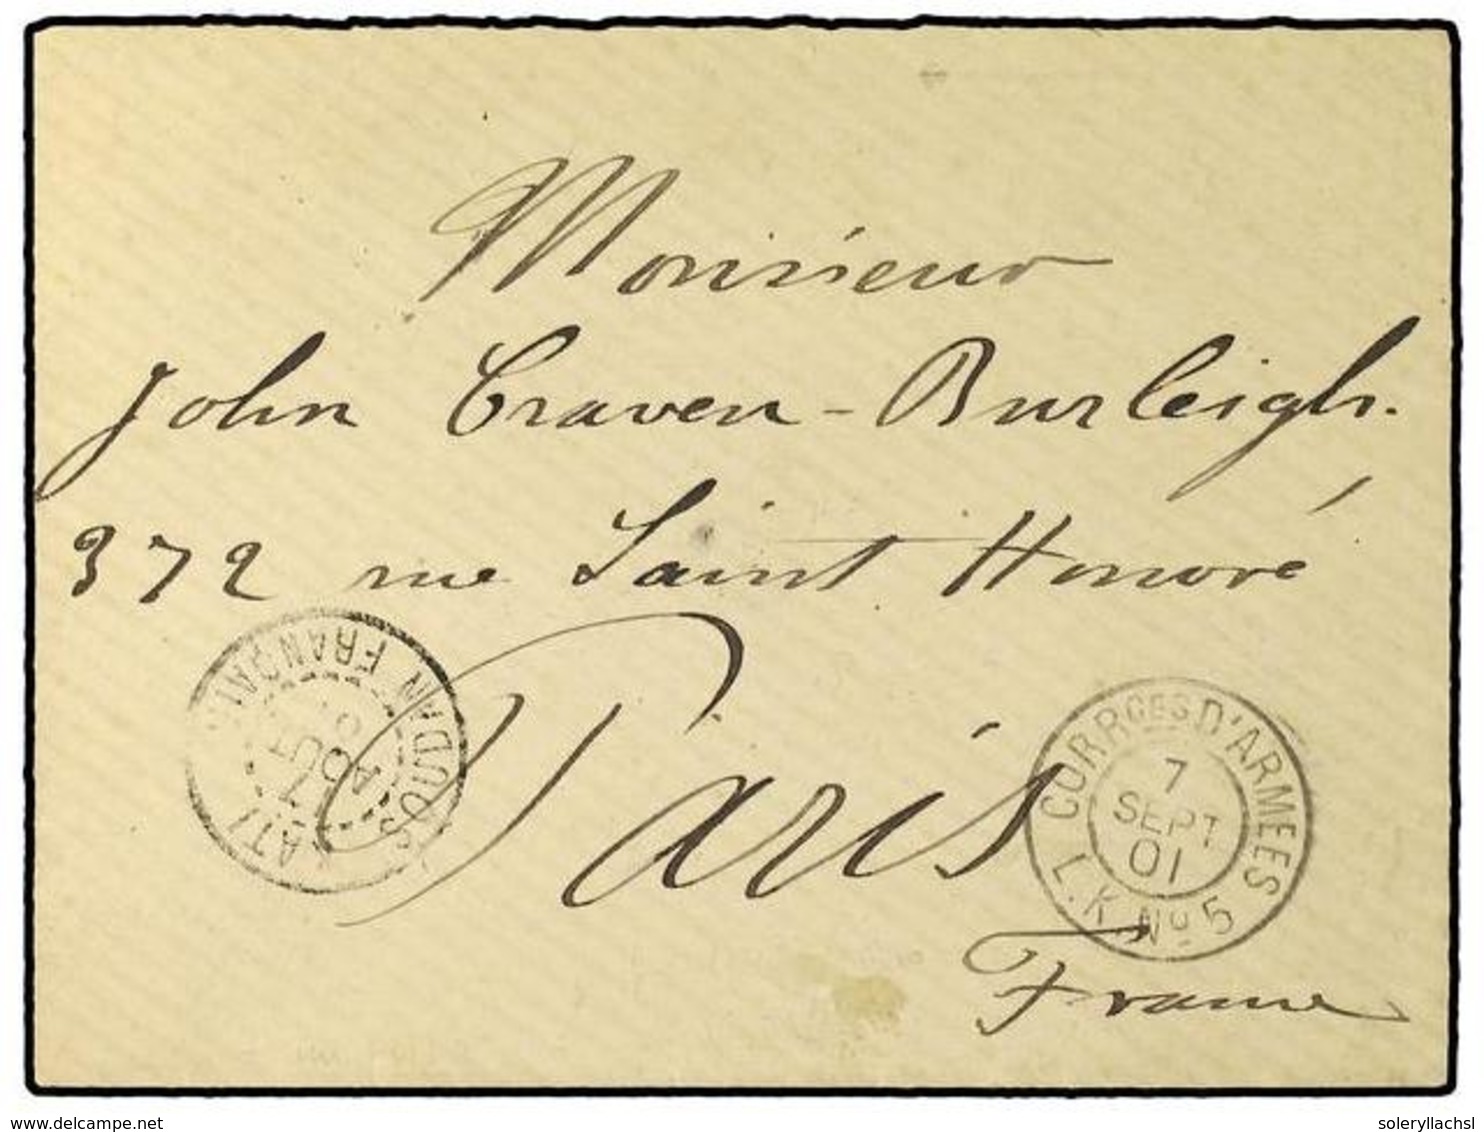 Monsieur
John Craven-Burleigh.
372 rue Saint Honoré
Paris
France
KATI
SOUDAN FRANÇAI
AOU
CORRCES D'ARMEES
7
SEPT
01
L.K. No 5
www.delcampe.net
soleryllachsl